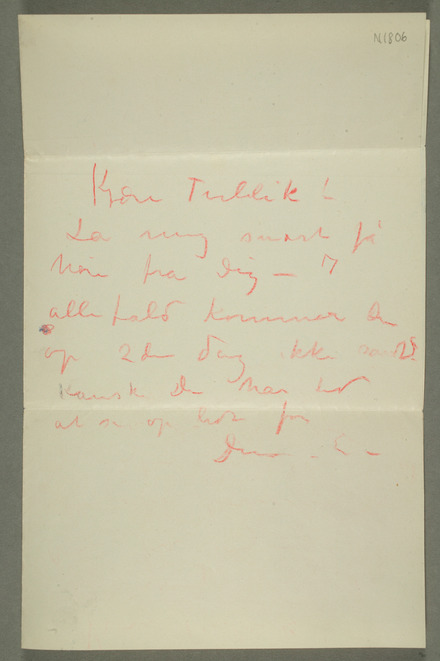 N1806
Kjære Tullik!
La mig snart få
høre fra Dig – I
allefald kommer Du
op 2den Dag ikke sandt?
Kanske Du har lyst
at se op før
Din – E –